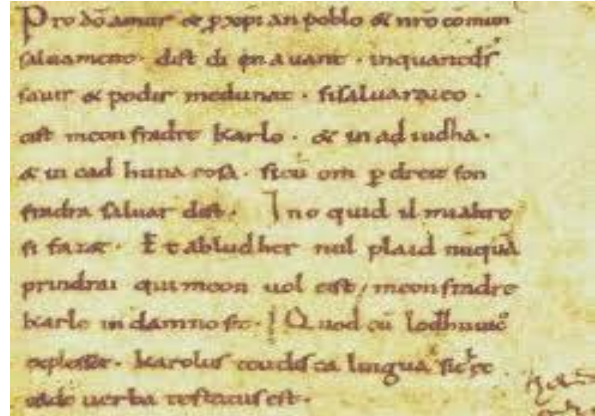 Pro dõ amur & p xp̃ian poblo & nr̃o cõmun
saluament. dist di en auant. inquantdſ
sauir & podir medunat. sisaluaraieo.
cist meon fradre Karlo. & in ad iudha.
& in cad huna cosa. sicũ om p dreit son
fradra saluar dist. Ino quid il mialtre
si faz&. Et abludher nul plaid nũquã
prindrai qui meon uol cist, meon fradre
Karle in damno sit. Quod cũ lodhuuic
explesset. karolus teudisca lingua sic ec
eadẽ uerba testatus est.